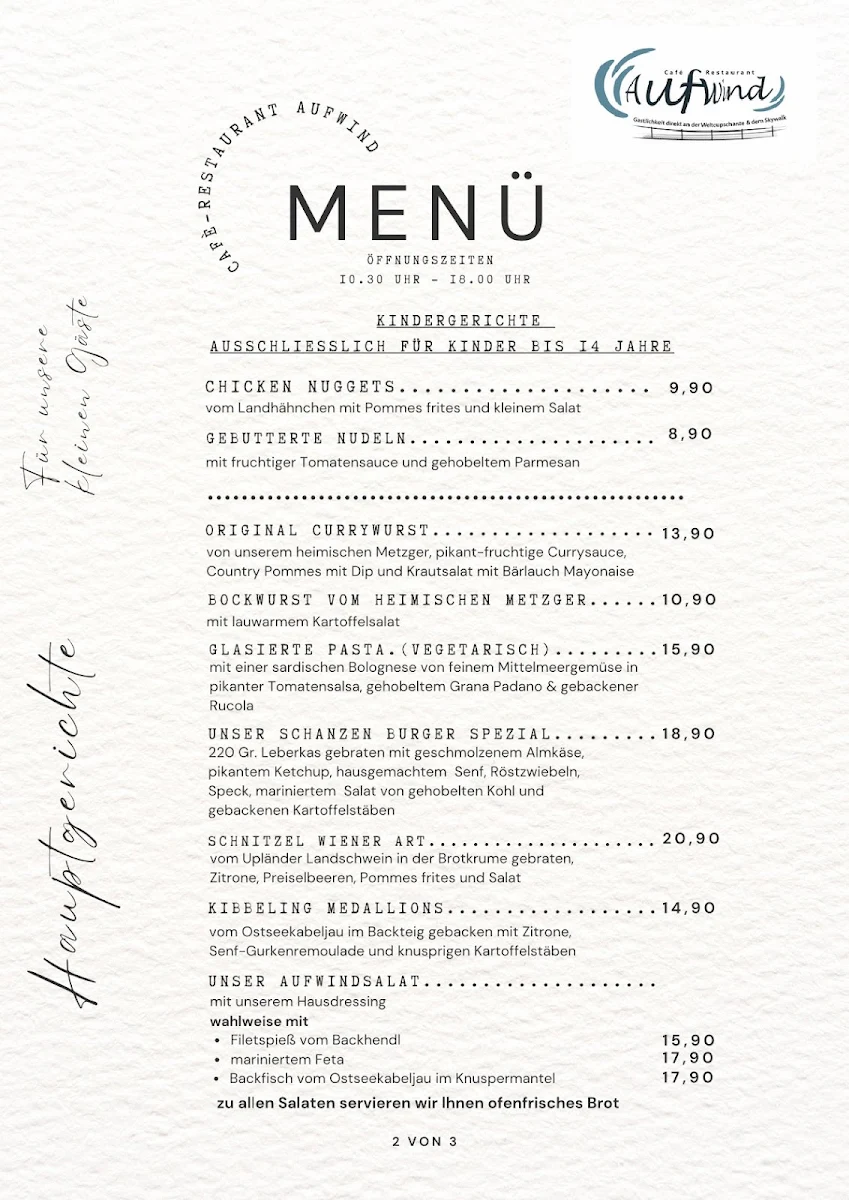 Café Restaurant
Aufwind
Gastlichkeit direkt an der Weltcupschanze & dem Skywalk
CAFÈ-RESTAURANT AUFWIND
MENÜ
ÖFFNUNGSZEITEN
10.30 UHR - 18.00 UHR
Für unsere
kleinen Gäste
KINDERGERICHTE
AUSSCHLIESSLICH FÜR KINDER BIS 14 JAHRE
CHICKEN NUGGETS..................... 9,90
vom Landhähnchen mit Pommes frites und kleinem Salat
GEBUTTERTE NUDELN..................... 8,90
mit fruchtiger Tomatensauce und gehobeltem Parmesan
Hauptgerichte
ORIGINAL CURRYWURST................... 13,90
von unserem heimischen Metzger, pikant-fruchtige Currysauce,
Country Pommes mit Dip und Krautsalat mit Bärlauch Mayonaise
BOCKWURST VOM HEIMISCHEN METZGER......10,90
mit lauwarmem Kartoffelsalat
GLASIERTE PASTA.(VEGETARISCH).........15,90
mit einer sardischen Bolognese von feinem Mittelmeergemüse in
pikanter Tomatensalsa, gehobeltem Grana Padano & gebackener
Rucola
UNSER SCHANZEN BURGER SPEZIAL.........18,90
220 Gr. Leberkas gebraten mit geschmolzenem Almkäse,
pikantem Ketchup, hausgemachtem Senf, Röstzwiebeln,
Speck, mariniertem Salat von gehobelten Kohl und
gebackenen Kartoffelstäben
SCHNITZEL WIENER ART................... 20,90
vom Upländer Landschwein in der Brotkrume gebraten,
Zitrone, Preiselbeeren, Pommes frites und Salat
KIBBELING MEDALLIONS..................14,90
vom Ostseekabeljau im Backteig gebacken mit Zitrone,
Senf-Gurkenremoulade und knusprigen Kartoffelstäben
UNSER AUFWINDSALAT....................
mit unserem Hausdressing
wahlweise mit
• Filetspieß vom Backhendl 15,90
• mariniertem Feta 17,90
• Backfisch vom Ostseekabeljau im Knuspermantel 17,90
zu allen Salaten servieren wir Ihnen ofenfrisches Brot
2 VON 3